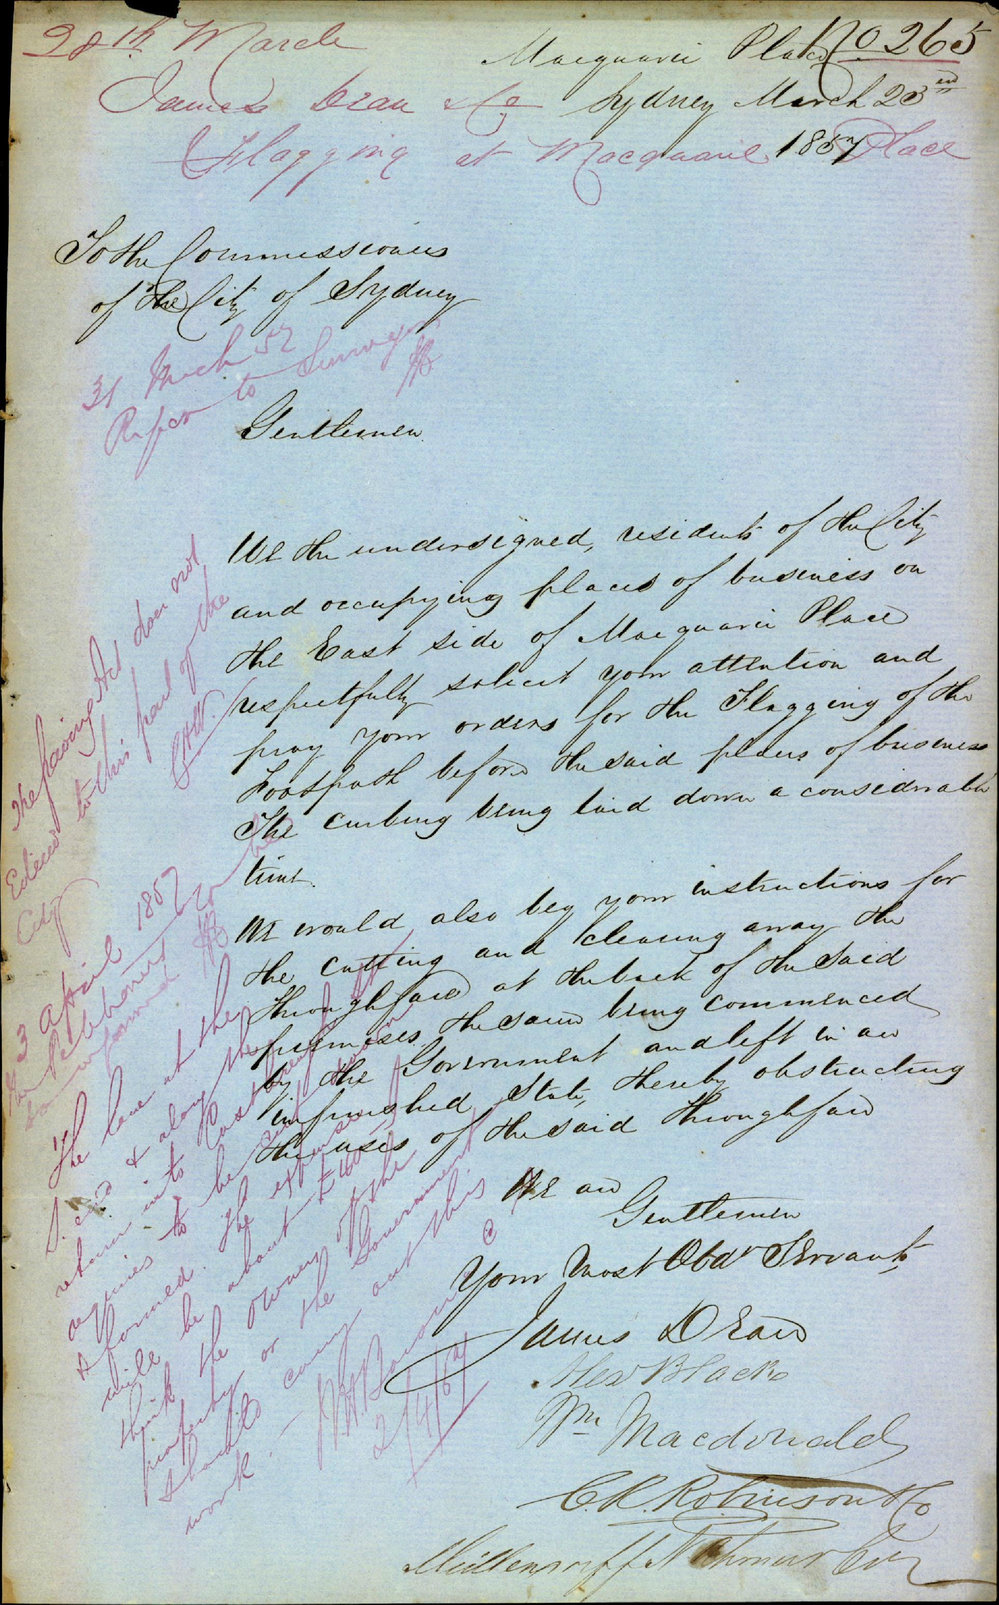 28th March
No 265
Macquarie Place
James Dean & Co
Sydney March 23rd
Flagging at Macquarie Place
1857
To the Commissioners
of the City of Sydney
31 March 57
Refer to Surveyor
Gentlemen
We the undersigned, residents of the City
and occupying places of business on
the East side of Macquarie Place
respectfully solicit your attention and
pray your orders for the Flagging of the
Footpath before the said places of business
The curbing being laid down a considerable
time.
We would also beg your instructions for
the cutting and clearing away the
thoroughfare at the back of the said
premises, the same being commenced
by the Government and left in an
unfinished State, thereby obstructing
the uses of the said thoroughfare
We are
Gentlemen
Your most Obdt Servants
James Dean
Alexr Black
Wm Macdonald
C. R. Robinson & Co
The paving Act does not
Extend to this part of the
City
3 April 1857
the Petitioners to be
so informed
The lane at the
return into
requires to be
& formed. The expense
will be about £
think the owners of the
property or the Government
should carry out this
work.
2/4/57